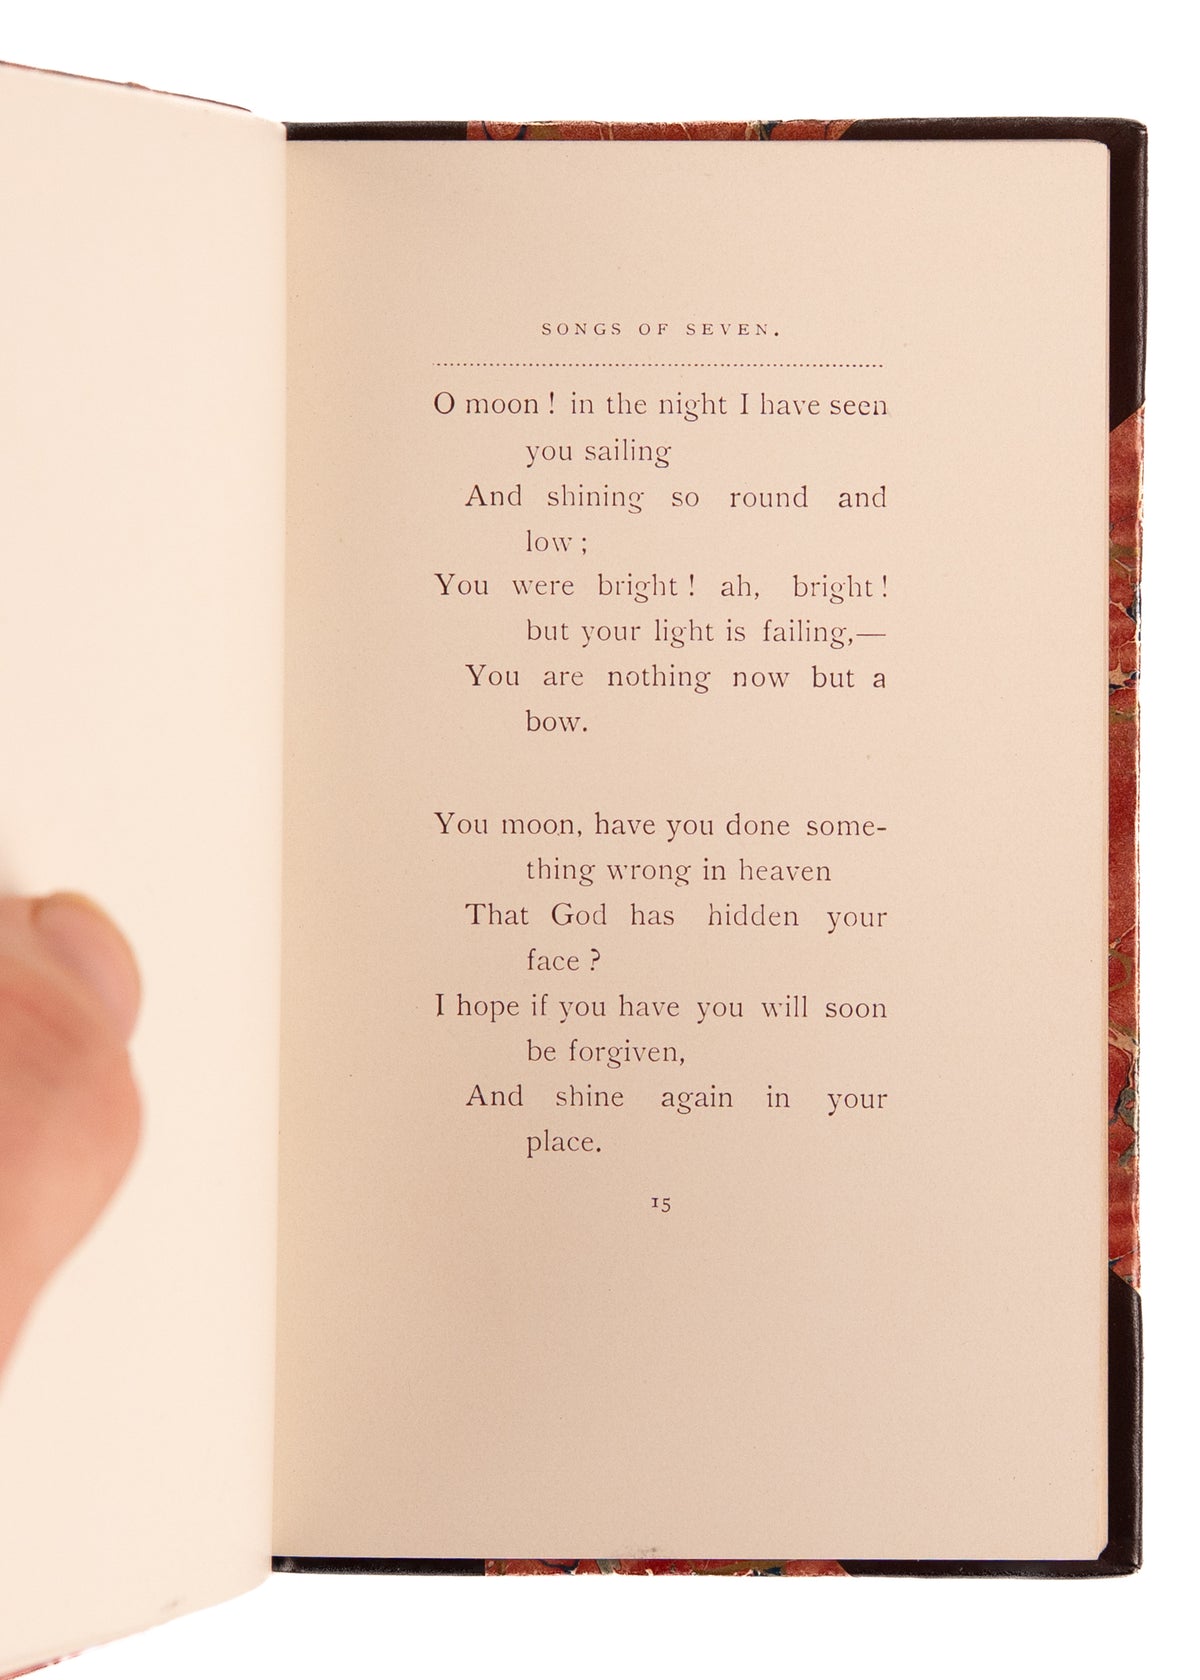 SONGS OF SEVEN.
O moon ! in the night I have seen
you sailing
And shining so round and
low ;
You were bright ! ah, bright !
but your light is failing,—
You are nothing now but a
bow.
You moon, have you done some-
thing wrong in heaven
That God has hidden your
face ?
I hope if you have you will soon
be forgiven,
And shine again in your
place.
15